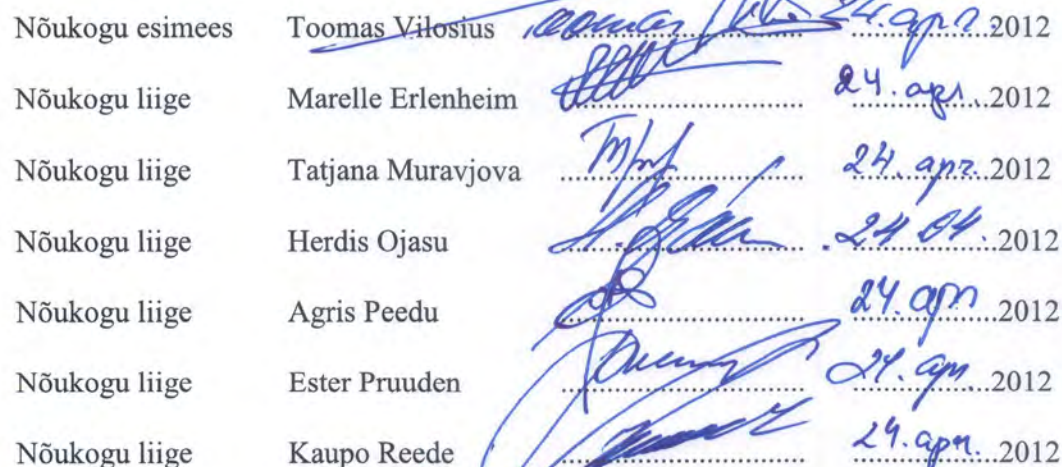 Nõukogu esimees Toomas Vilosius Toomas 24. apr. 2012
Nõukogu liige Marelle Erlenheim 24. apr. 2012
Nõukogu liige Tatjana Muravjova 24. apr. 2012
Nõukogu liige Herdis Ojasu 24 04. 2012
Nõukogu liige Agris Peedu 24. apr 2012
Nõukogu liige Ester Pruuden 24. apr. 2012
Nõukogu liige Kaupo Reede 24. apr. 2012